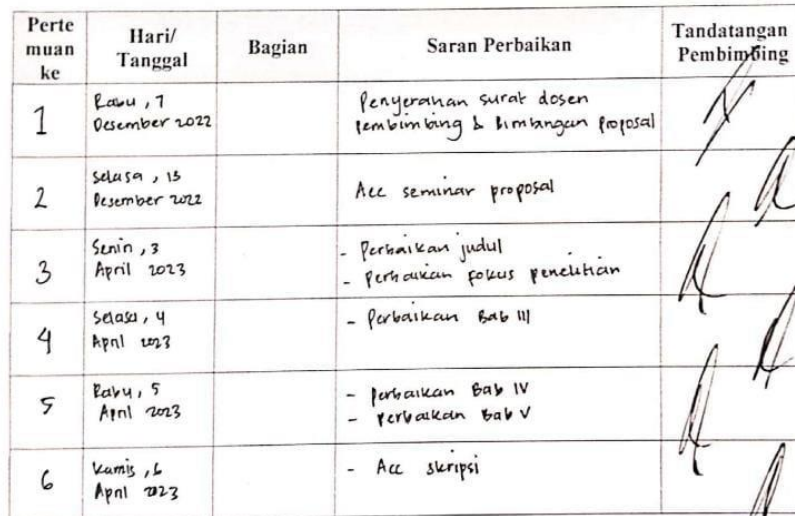 Perte
muan
ke
Hari/
Tanggal
Bagian
Saran Perbaikan
Tandatangan
Pembimbing
1
Rabu, 7
Desember 2022
Penyerahan surat dosen
pembimbing & bimbingan proposal
2
Selasa, 13
Desember 2022
Acc seminar proposal
3
Senin, 3
April 2023
- Perbaikan judul
- Perbaikan fokus penelitian
4
Selasa, 4
April 2023
- Perbaikan Bab III
5
Rabu, 5
April 2023
- perbaikan Bab IV
- perbaikan Bab V
6
Kamis, 6
April 2023
- Acc skripsi